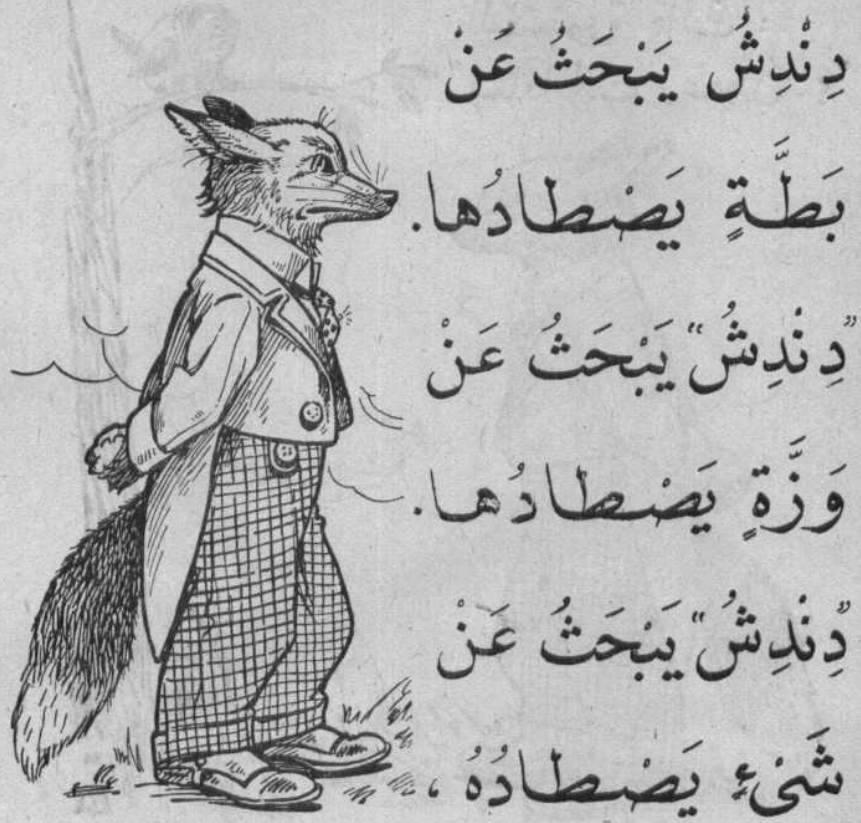 دِنْدِشُ يَبْحَثُ عَنْ
بَطَّةٍ يَصْطادُها.
"دِنْدِشُ" يَبْحَثُ عَنْ
وَزَّةٍ يَصْطادُها.
"دِنْدِشُ" يَبْحَثُ عَنْ
شَىْءٍ يَصْطادُهُ ،